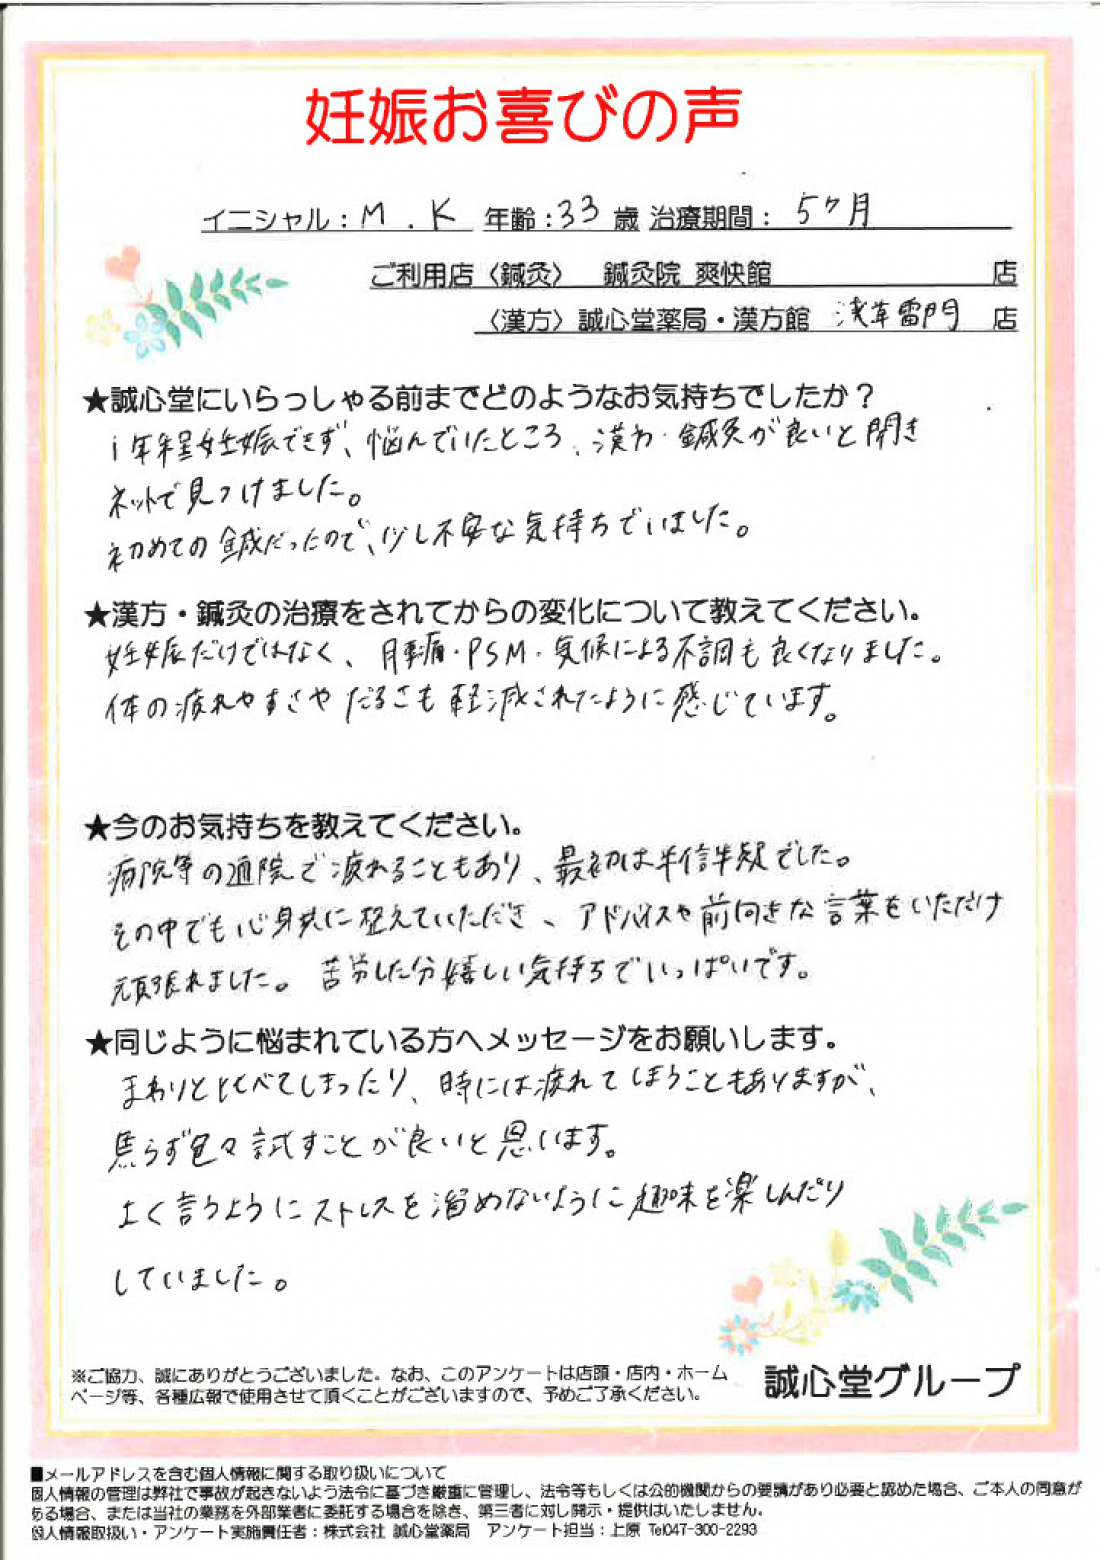 妊娠お喜びの声
イニシャル：M．K 年齢：33 歳 治療期間： 5ヶ月
ご利用店〈鍼灸〉 鍼灸院 爽快館 店
〈漢方〉誠心堂薬局・漢方館 浅草雷門 店
★誠心堂にいらっしゃる前までどのようなお気持ちでしたか？
1年程妊娠できず、悩んでいたところ、漢方・鍼灸が良いと聞き
ネットで見つけました。
初めての鍼だったので、少し不安な気持ちでいました。
★漢方・鍼灸の治療をされてからの変化について教えてください。
妊娠だけではなく、腰痛・PSM・気候による不調も良くなりました。
体の疲れやすさやだるさも軽減されたように感じています。
★今のお気持ちを教えてください。
病院等の通院で疲れることもあり、最初は半信半疑でした。
その中でも心身共に整えていただき、アドバイスや前向きな言葉をいただけ
頑張れました。苦労した分嬉しい気持ちでいっぱいです。
★同じように悩まれている方へメッセージをお願いします。
まわりと比べてしまったり、時には疲れてしまうこともありますが、
焦らず色々試すことが良いと思います。
よく言うようにストレスを溜めないように趣味を楽しんだり
していました。
※ご協力、誠にありがとうございました。なお、このアンケートは店頭・店内・ホーム
ページ等、各種広報で使用させて頂くことがございますので、予めご了承ください。
誠心堂グループ
■メールアドレスを含む個人情報に関する取り扱いについて
個人情報の管理は弊社で事故が起きないよう法令に基づき厳重に管理し、法令等もしくは公的機関からの要請があり必要と認めた場合、ご本人の同意が
ある場合、または当社の業務を外部業者に委託する場合を除き、第三者に対し開示・提供はいたしません。
個人情報取扱い・アンケート実施責任者：株式会社 誠心堂薬局 アンケート担当：上原 Tel047-300-2293